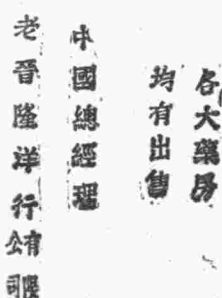 各大藥房
均有出售
中國總經理
老晉隆洋行有限公司